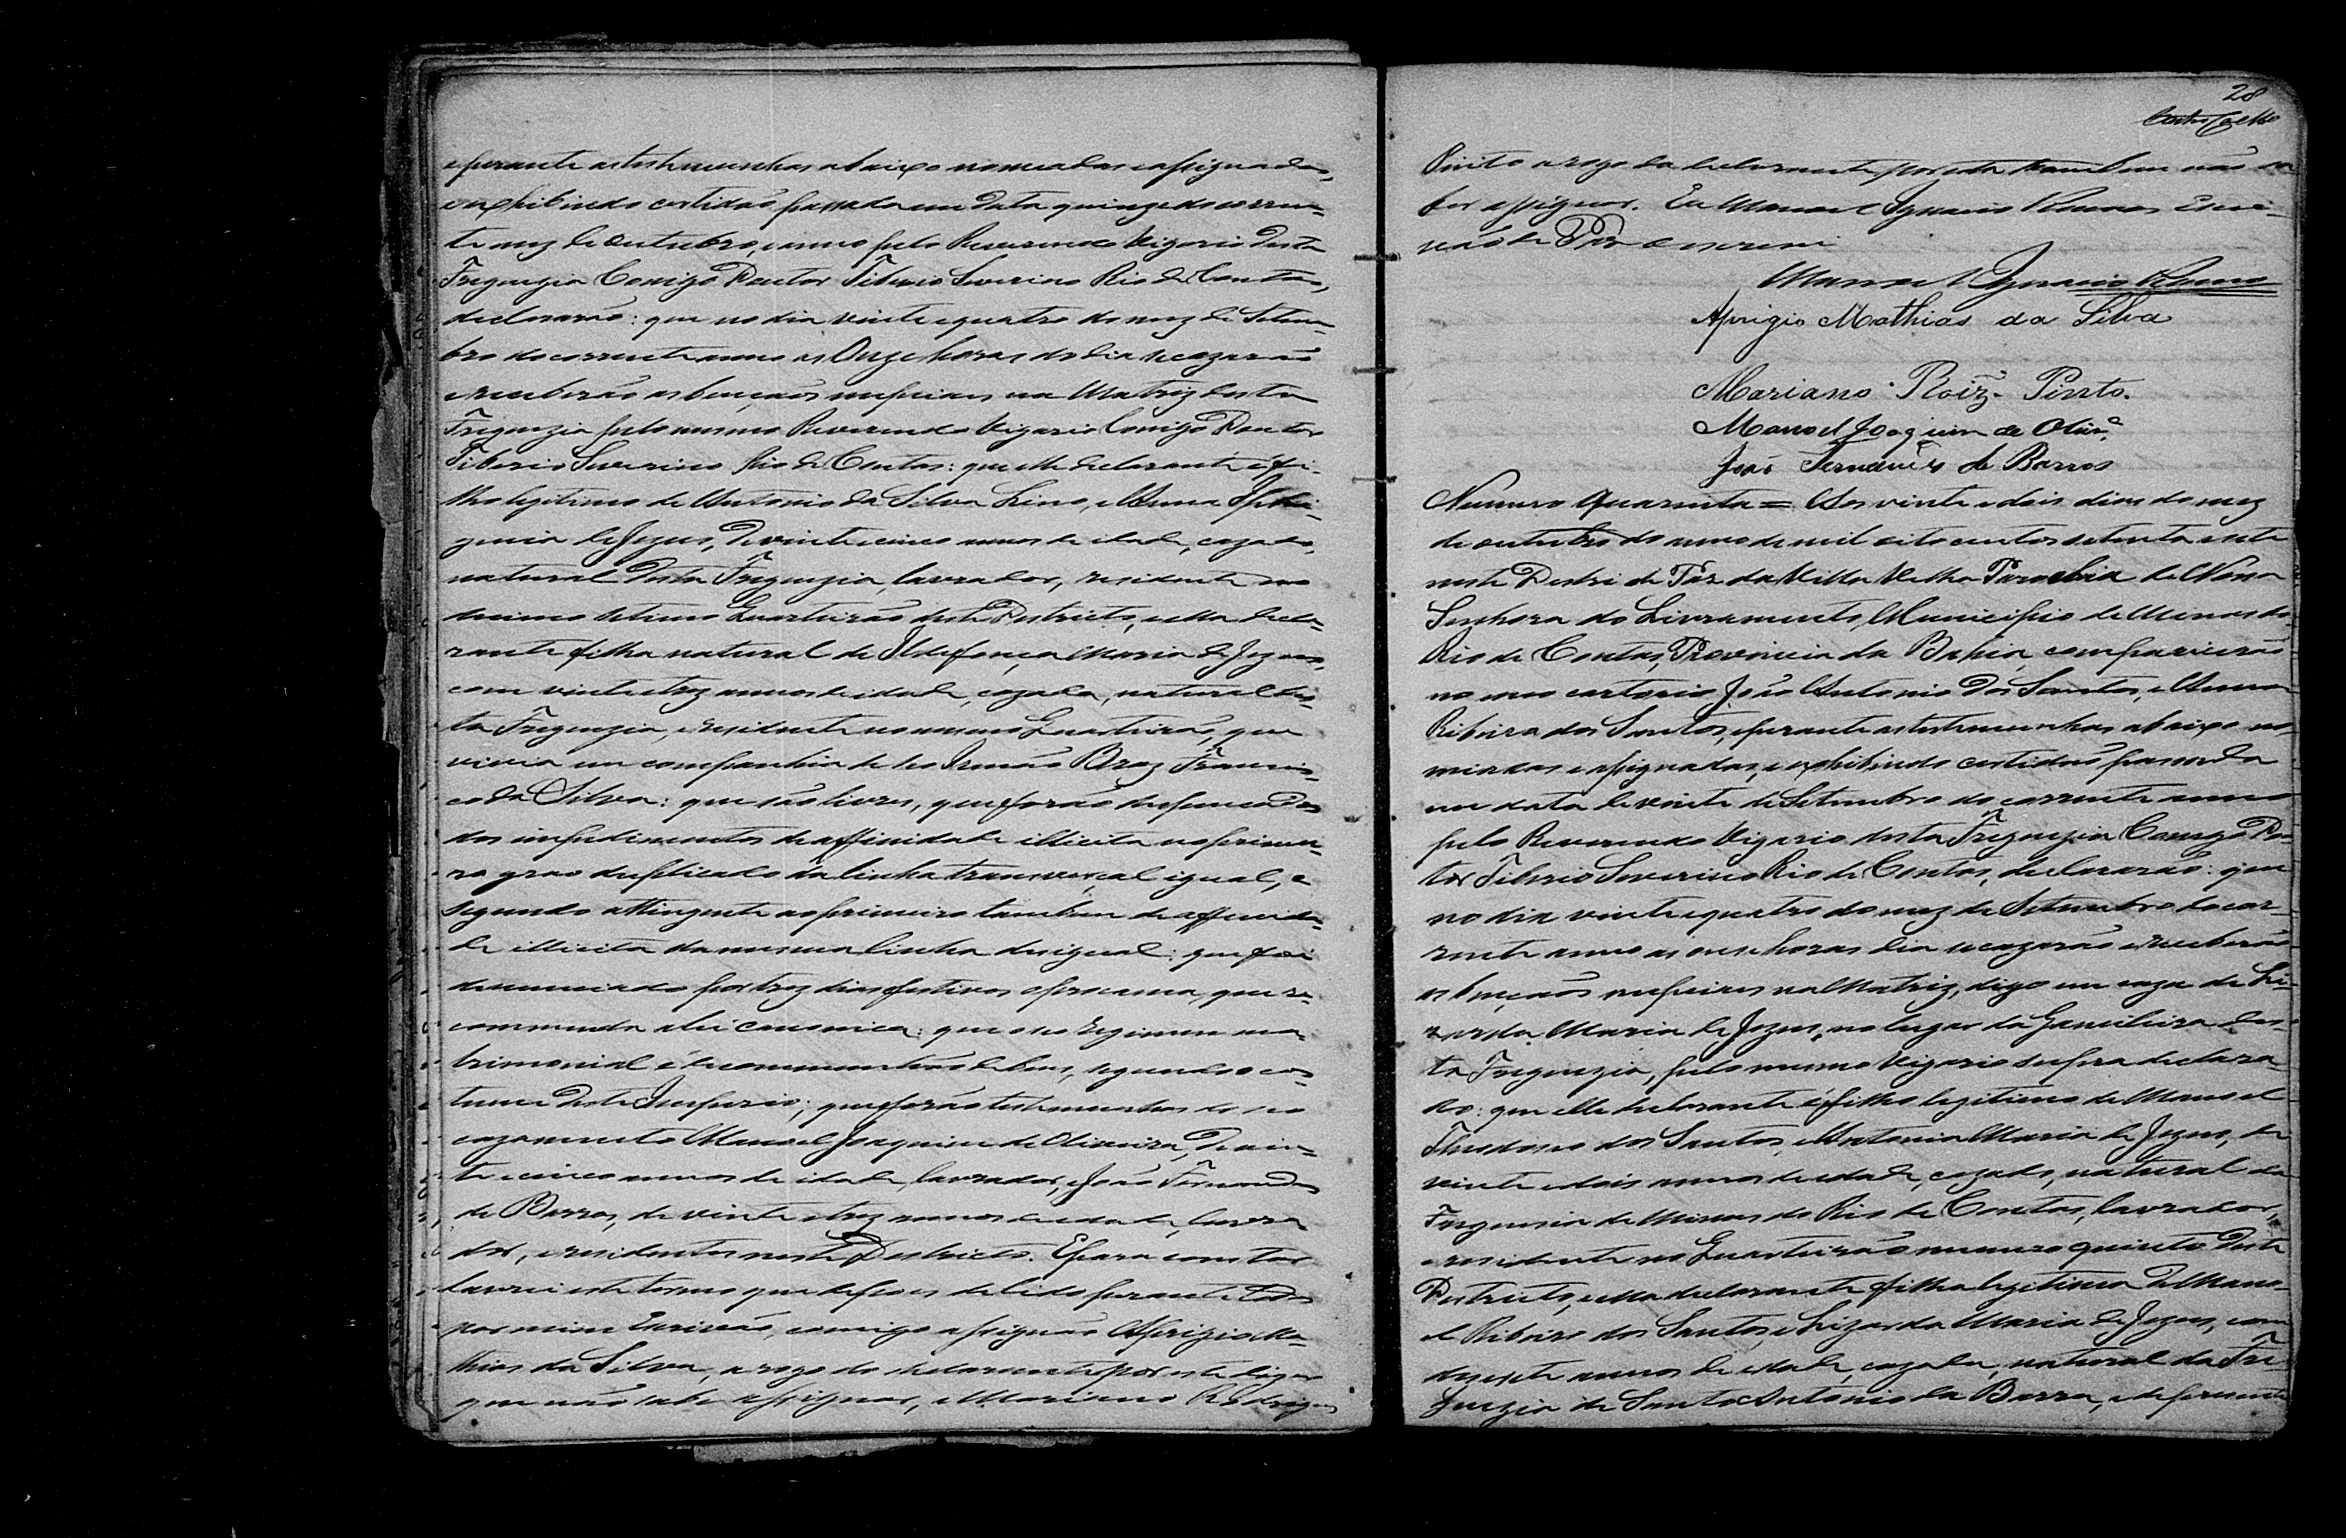 e perante as testemunhas abaixo nomeadas e assignadas,
e exhibindo certidão passada em data quinze do corren-
te mez de Outubro, e anno pelo Reverendo Vigario desta
Freguezia Conigo Doutor Tiberio Severino Rio de Contas,
declararão: que no dia vinte e quatro do mez de Setem-
bro do corrente anno as Onze horas do dia se cazarão
e receberão as bençãos nupciaes na Matriz desta
Freguezia pelo mesmo Reverendo Vigario Conigo Doutor
Tiberio Severino Rio de Contas: que elle declarante é fi-
lho legitimo de Antonio da Silva Lino, e Anna Ephi-
genia de Jezus, de vinte e cinco annos de idade, cazado,
natural desta Freguezia, lavrador, residente no
decimo setimo Quarteirão deste Destricto, e ella decla-
rante filha natural de Ildefonça Maria de Jezus,
com vinte e trez annos de idade, cazada, natural des-
ta Freguezia, e residente no mesmo Quarteirão, que
vivia em companhia de seo Irmão Braz Francis-
co da Silva: que são livres, que forão despençados
dos impedimentos de affinidade illicita no primei-
ro grao duplicado da linha transverçal igual, e
segundo attingente ao primeiro tambem de affinida-
de illicita da mesma linha desigual: que foi
denunciado por trez dias festivos o proclama, que re-
commenda a lei canonica: que o seo regimen ma-
trimonial é de communhão de bens, segundo o cos-
tume deste Imperio; que forão testemunhas do seo
cazamento Manoel Joaquim de Oliveira, de vin-
te e cinco annos de idade, lavrador, e João Fernandes
de Barros, de vinte e trez annos de idade, lavra-
dor, e residentes neste Destricto. E para constar
lavrei este termo que depois de lido perante todos
por mim Escrivão, comigo assignão Aprigio Ma-
thias da Silva, a rogo do declarante por este dizer
que não sabe assignar, e Mariano Rodrigues
28
Pinto a rogo da declarante por esta tambem não sa-
ber assignar. Eu Manoel Ignacio Escri-
vão de Paz o escrevi
Manoel Ignacio
Aprigio Mathias da Silva
Mariano Roiz. Pinto.
Manoel Joaquim de Olivra
João Fernandes de Barros
Numero Quarenta = Aos vinte e dois dias do mez
de outubro do anno de mil oito centos setenta e sete
neste Destri de Paz da Villa Velha Parochia de Nossa
Senhora do Livramento, Municipio de Minas do
Rio de Contas, Provincia da Bahia, comparecerão
no meo cartorio João Antonio dos Santos, e Anna
Ribeira dos Santos, e perante as testemunhas abaixo no-
miadas e assignadas, e exhibindo certidão passada
em data de vinte de Setembro do corrente anno
pelo Reverendo Vigario desta Freguezia Conego Do-
tor Tiberio Severino Rio de Contas, declararão: que
no dia vinte e quatro do mez de Setembro do cor-
rente anno as onze horas dia se cazarão e receberão
as bençãos nupciaes na Matriz, digo em caza de Li-
zarda Maria de Jezus, no lugar da Gamelleira des-
ta Freguezia, pelo mesmo Vigario supra declara-
do: que elle declarante é filho legitimo de Manoel
Theodosio dos Santos, e Antonia Maria de Jezus, de
vinte e dois annos de idade, cazado, natural da
Freguesia de Minas do Rio de Contas, lavrador,
e residente no Quarteirão numero quinto deste
Destricto, e ella declarante filha legitima de Mano-
el Ribeiro dos Santos, e Lizarda Maria de Jezus, com
dezesete annos de idade, cazada, natural da Fre-
guezia de Santo Antonio da Barra, e de presente